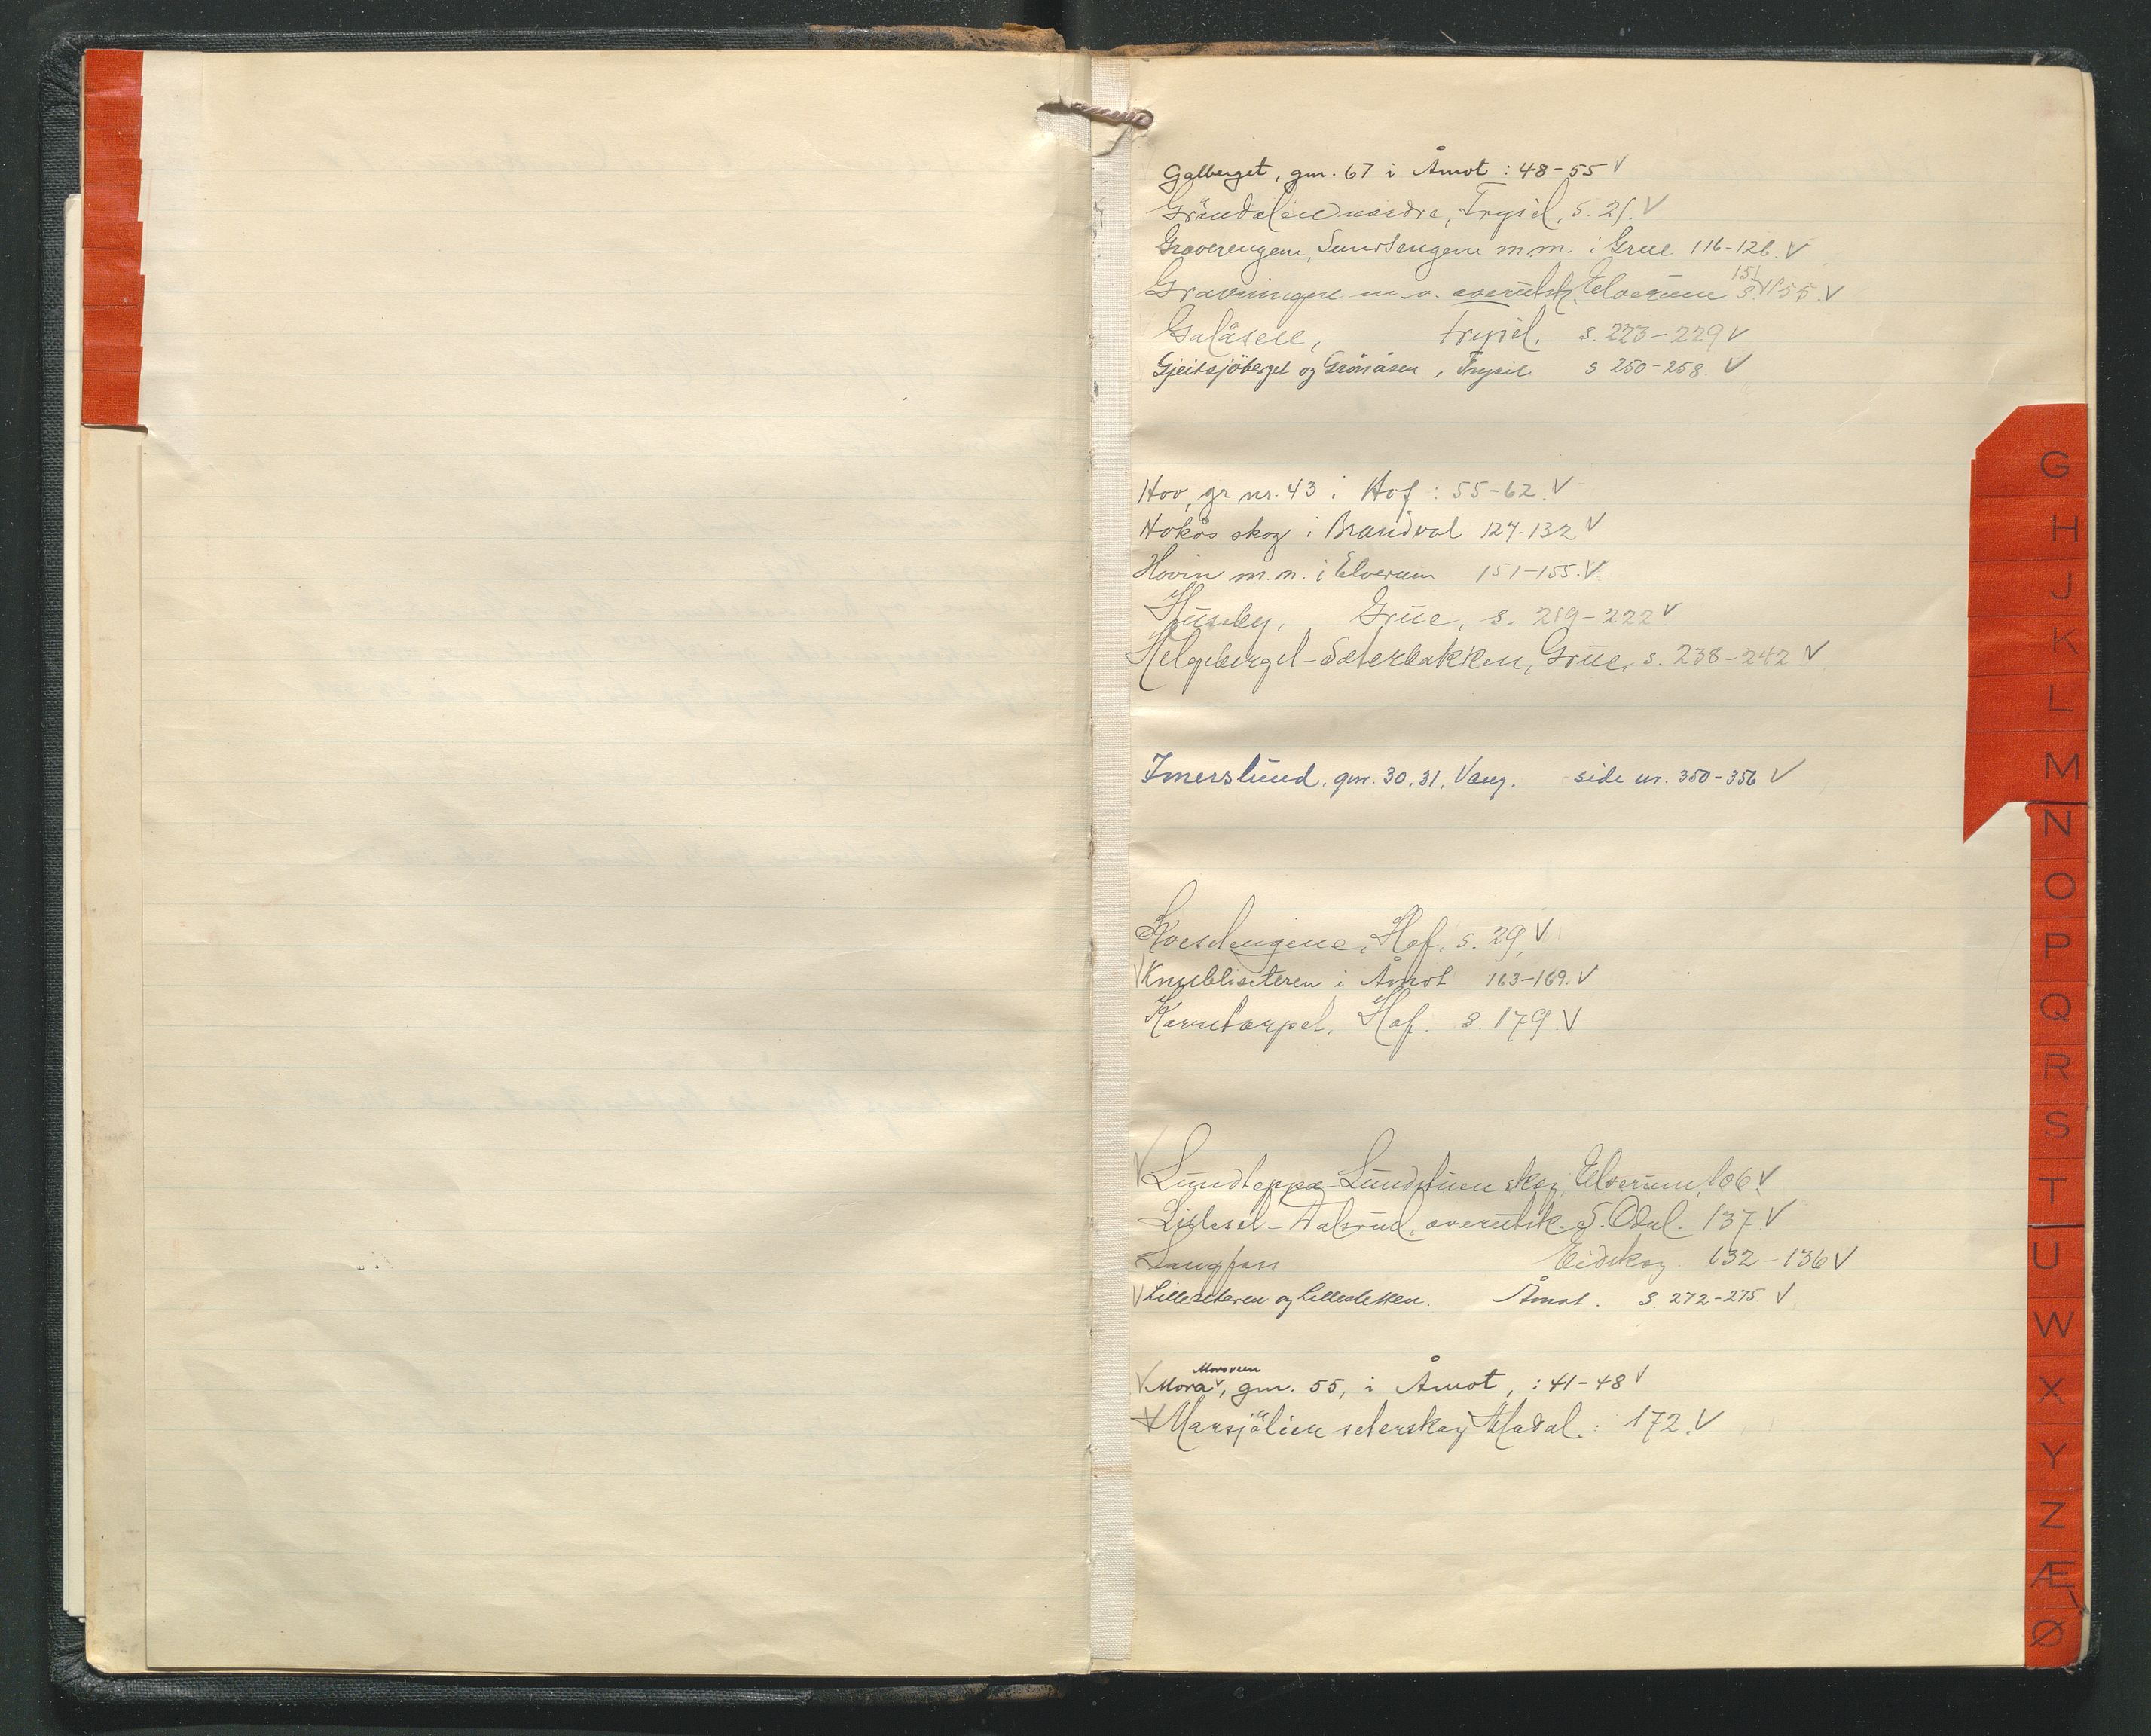 Galberget, gnr. 67 i Åmot : 48-55 V
Gröndalen nordre, Trysil, s. 21. V
Graverengene, Sundsengene m.m. i Grue 116-126. V
Gravningen m.v. overutsk. Elverum s. 151 155. V
Galåsen, Trysil, s. 223-229 V
Gjeitsjöberget og Grönåsen, Trysil s 250-258. V
Hov, gr nr. 43 i Hof : 55-62. V
Hokås skog i Brandval 127-132 V
Hovin m.m. i Elverum 151-155. V
Huseby, Grue, s. 219-222 V
Helgeberget-Sæterbakken, Grue, s. 238-242 V
Imerslund, gnr. 30, 31, Vang. side nr. 350-356 V
Hof, s. 29, V
V Knubliseteren i Åmot 163-169. V
Hof. s. 179. V
V Lundteppa-Lundstuen skog, Elverum, 106 V
overutsk. S. Odal. 137. V
Langfoss Eidskog. 132-136 V
V Lilleseteren og Lillesletten. Åmot. S. 272-275. V
Moraveen
V Mora V, gnr. 55, i Åmot, : 41-48 V
V Marsjölien seterskog Modal : 172. V
G
H
J
K
L
M
N
O
P
Q
R
S
T
U
W
X
Y
Z
Æ
Ø